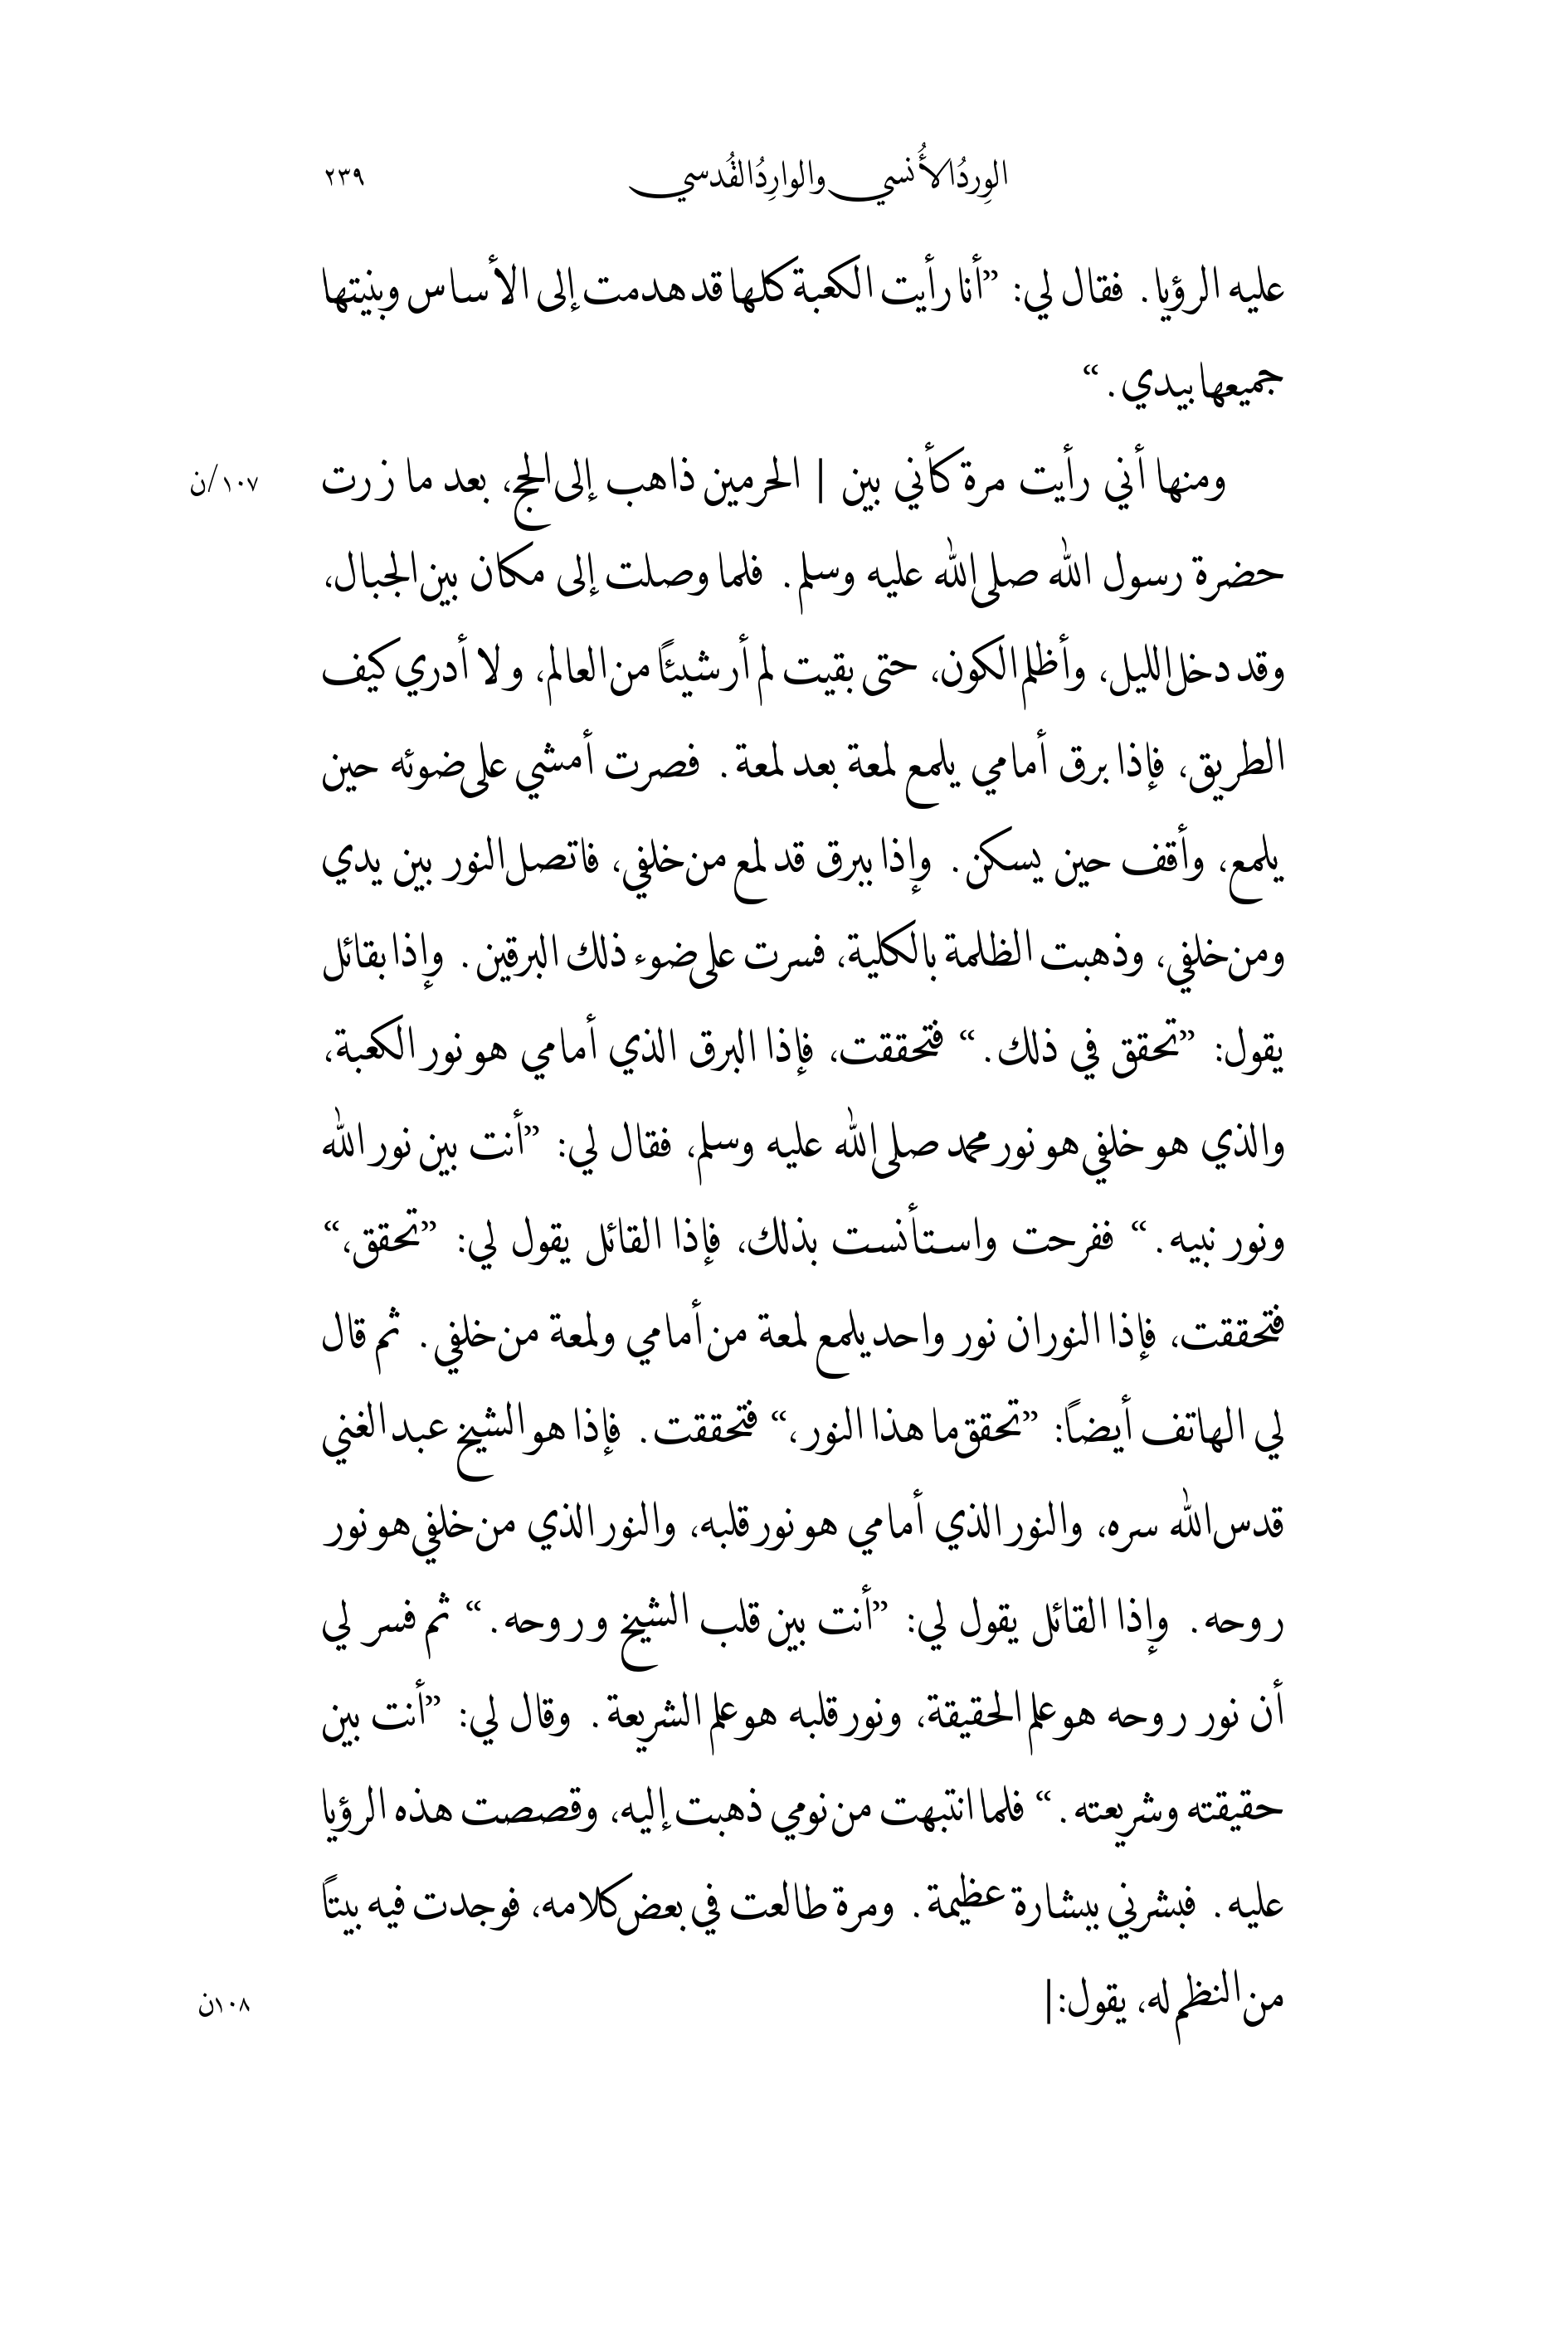 الوِردُ الأُنسي والوارِدُ القُدسي ٢٣٩
عليه الرؤيا. فقال لي: ”أنا رأيت الكعبة كلها قد هدمت إلى الأساس وبنيتها
جميعها بيدي.“
ومنها أني رأيت مرة كأني بين | الحرمين ذاهب إلى الحج، بعد ما زرت ١٠٧/ن
حضرة رسول الله صلى الله عليه وسلم. فلما وصلت إلى مكان بين الجبال،
وقد دخل الليل، وأظلم الكون، حتى بقيت لم أر شيئًا من العالم، ولا أدري كيف
الطريق، فإذا برق أمامي يلمع لمعة بعد لمعة. فصرت أمشي على ضوئه حين
يلمع، وأقف حين يسكن. وإذا ببرق قد لمع من خلفي، فاتصل النور بين يدي
ومن خلفي، وذهبت الظلمة بالكلية، فسرت على ضوء ذلك البرقين. وإذا بقائل
يقول: ”تحقق في ذلك.“ فتحققت، فإذا البرق الذي أمامي هو نور الكعبة،
والذي هو خلفي هو نور محمد صلى الله عليه وسلم، فقال لي: ”أنت بين نور الله
ونور نبيه.“ ففرحت واستأنست بذلك، فإذا القائل يقول لي: ”تحقق،“
فتحققت، فإذا النوران نور واحد يلمع لمعة من أمامي ولمعة من خلفي. ثم قال
لي الهاتف أيضاً: ”تحقق ما هذا النور،“ فتحققت. فإذا هو الشيخ عبد الغني
قدس الله سره، والنور الذي أمامي هو نور قلبه، والنور الذي من خلفي هو نور
روحه. وإذا القائل يقول لي: ”أنت بين قلب الشيخ وروحه.“ ثم فسر لي
أن نور روحه هو علم الحقيقة، ونور قلبه هو علم الشريعة. وقال لي: ”أنت بين
حقيقته وشريعته.“ فلما انتبهت من نومي ذهبت إليه، وقصصت هذه الرؤيا
عليه. فبشرني ببشارة عظيمة. ومرة طالعت في بعض كلامه، فوجدت فيه بيتاً
من النظم له، يقول:| ١٠٨ن